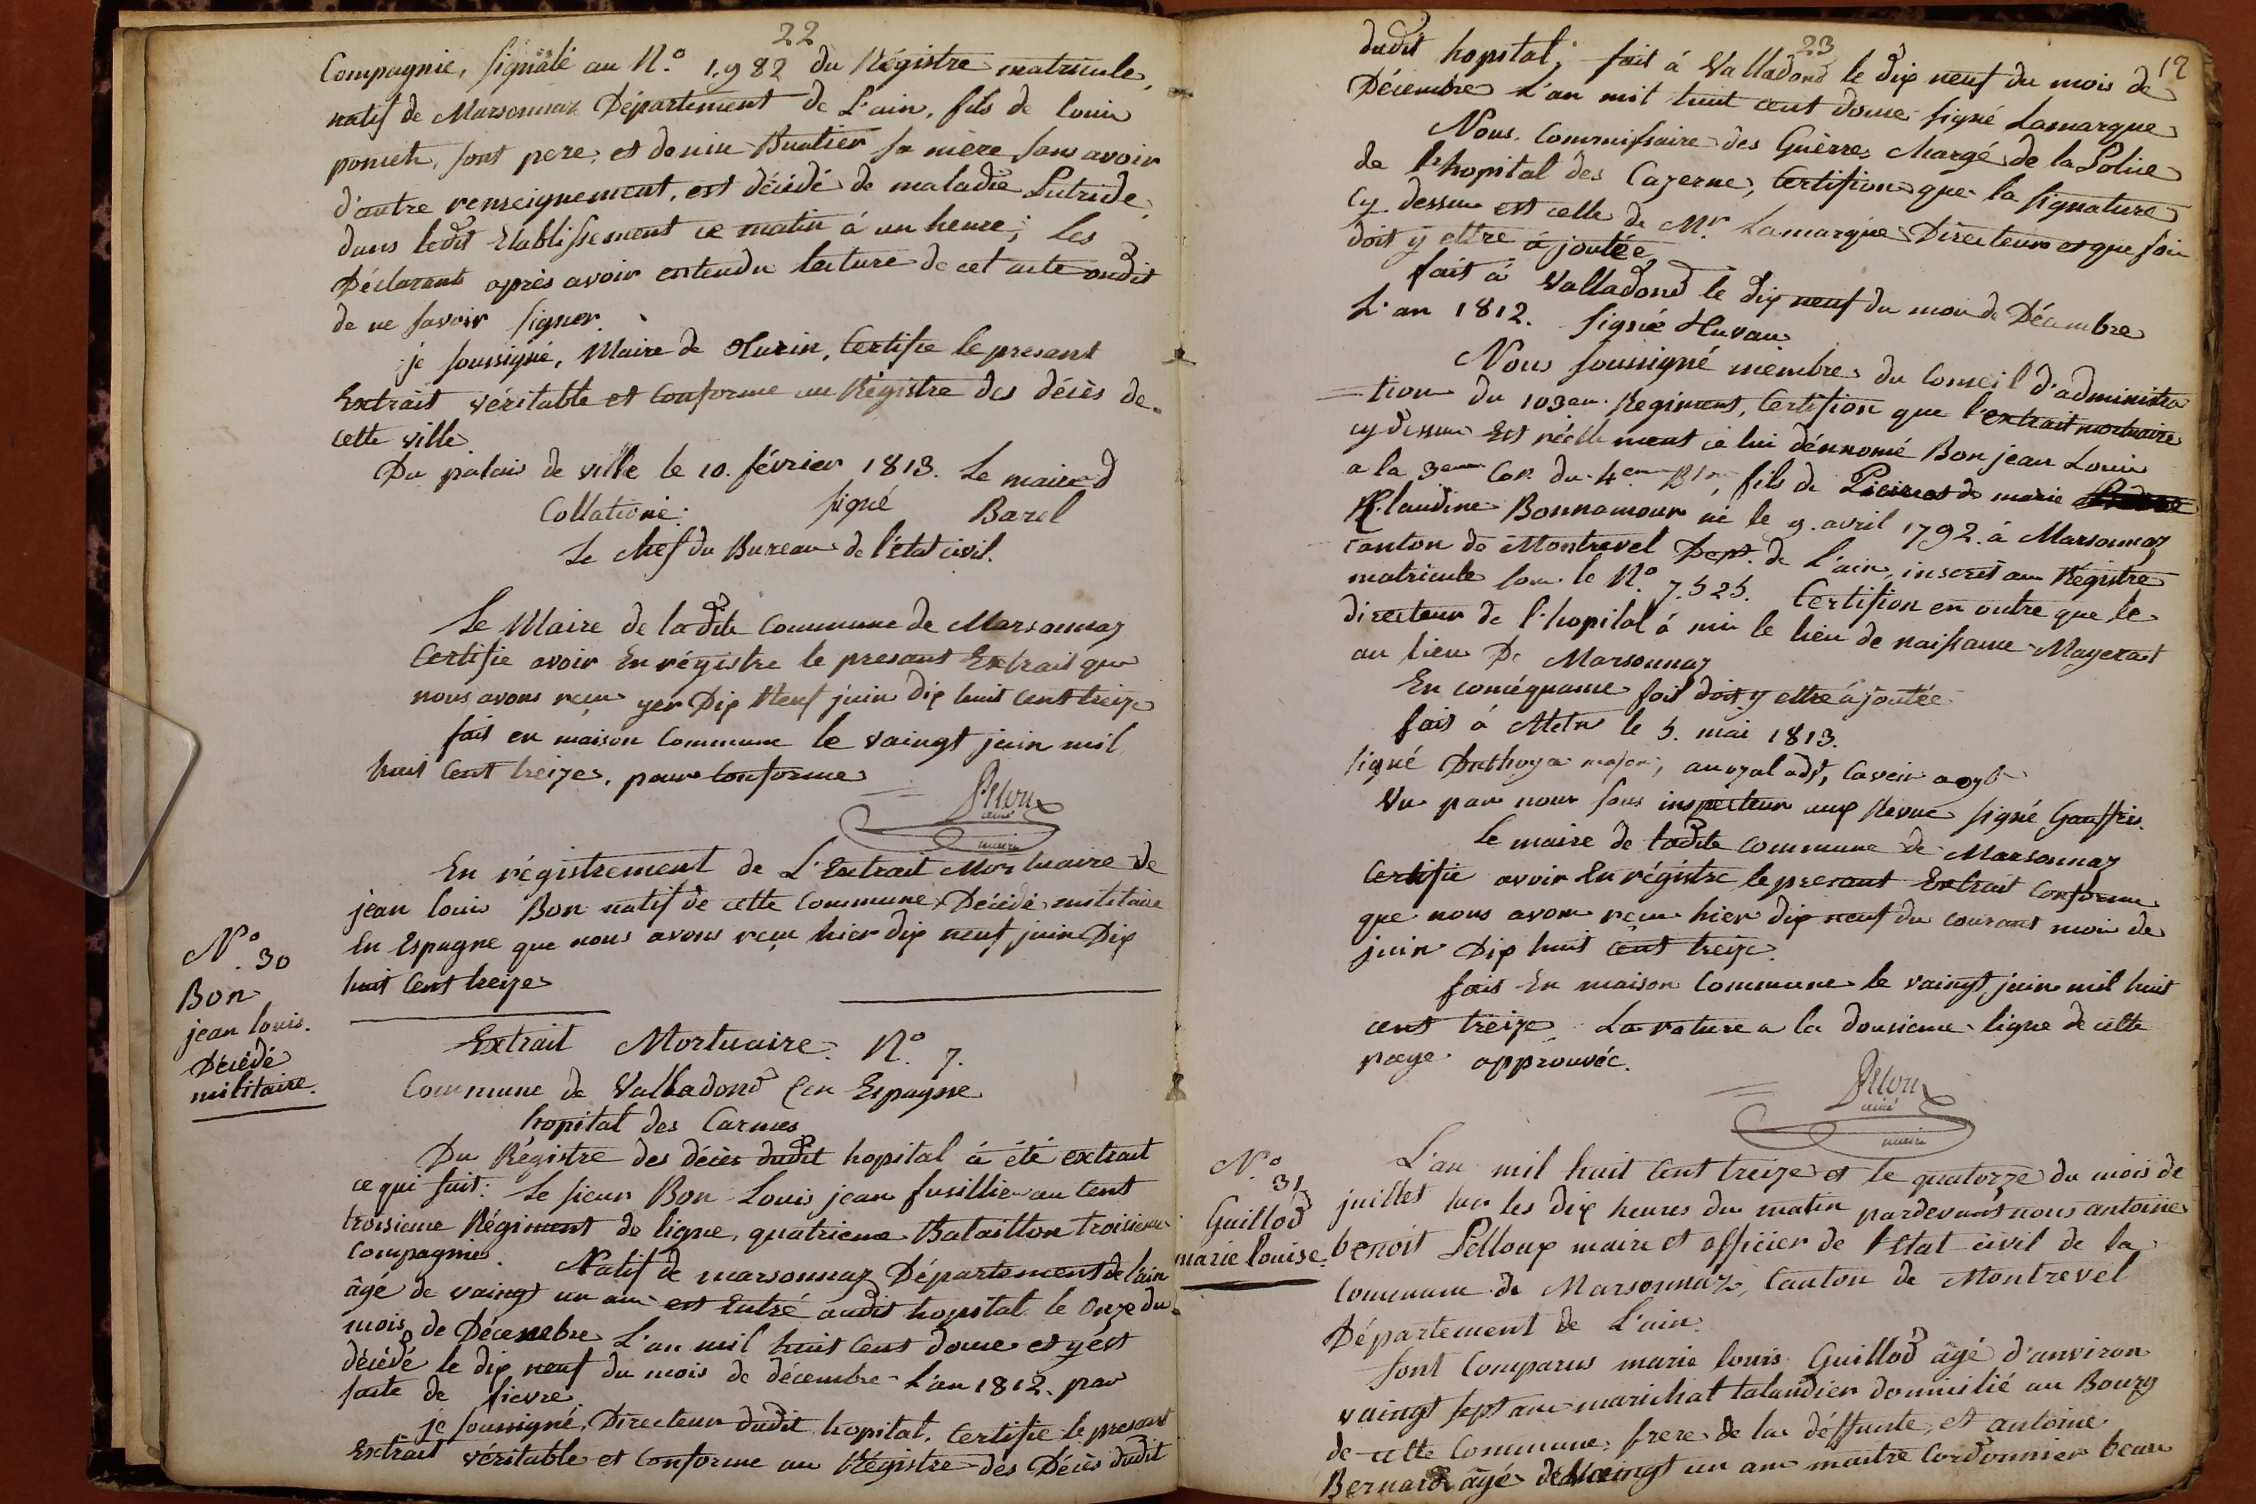 22
Compagnie, signalé au N.o 1,982 du Régistre matricule,
natif de Marsonnaz Département de L'ain, fils de louis
poncet, sont pere, et denise Buatier sa mère sans avoir
d'autre renseignement, est décédé de maladie Putride,
dans ledit Etablissement ce matin à un heure; Les
Déclarants après avoir entendu lecture de cet acte ondit
de ne savoir signer.
je soussigné, Maire de turin, Certifie le presant
Extrait véritable et Conforme au Régistre des décès de
cette ville
Du palais de ville le 10. février 1813. Le maire
Collationé: signé Barel
Le Chef du Bureau de l'état civil.
Le Maire de ladite Commune de Marsonnaz
Certifie avoir Enrégistre le presant Extrait que
nous avons reçu yer Dix Neuf juin dix huit Cent treize
fait en maison Commune le vaingt juin mil
huit Cent treize, pour Conforme
Pelloux
ainé
maire
En régistrement de L'Extrait Mortuaire de
jean louis Bon natif de cette Commune Décédé militaire
En Espagne que nous avons reçu hier dix neuf juin Dix
huit Cent treize
N.o 30
Bon
jean louis.
Décédé
militaire.
Extrait Mortuaire. N.o 7.
Commune de Valladond En Espagne
hopital des Carmes
Du Régistre des décès dudit hopital à été extrait
ce qui suit: Le sieur Bon Louis jean fusillier au Cent
troisieme Régiment de ligne, quatrieme Bataillon troisieme
Compagnie. Natif de marsonnaz Département de l'ain
âgé de vaingt un ans est Entré audit hopital le Onze du
mois de Décembre L'an mil huit Cent douse et y est
décédé le dix neuf du mois de décembre L'an 1812. par
suite de fievre
je soussigné, Directeur dudit hopital, Certifie le presant
Extrait véritable et Conforme au Régistre des Décès dudit
23
12
dudit hopital; fait à Valladond le dix neuf du mois de
Décembre L'an mil huit cent douse signé Lamarque
Nous. Commissaire des Guèrres Chargé de la Police
de l'hopital des Cazerne, Certifions que la signature
Cy dessus est celle de Mr. Lamarque Directeur et que foi
doit y ettre àjoutée
fait à Valladond le dix neuf du mois de Décembre
L'an 1812. Signé Huvau
Nous soussigné membres du Conseil d'administra
=tion du 103em Régiment, Certifion que l'extrait mortuaire
cy dessus Est réellement ce lui dénnomé Bon jean Louis
a la 3eme Con du 4em Bton, fils de Pierre et de marie
Claudine Bonnamour né le 9. avril 1792. à Marsonnaz
canton de Montrevel Dept. de L'ain, inscrit au Régistre
matricule sous le N.o 7.525. Certifion en outre que le
directeur de l'hopital à mis le lieu de naissance Mayerat
au lieu De Marsonnaz
En conséquance foit doit y ettre àjoutée
fait à Metz le 5. mai 1813.
signé Duthoya major,
Vu par nous sous inspecteur aux Revue signé Gauffres.
Le maire de ladite commune de Marsonnaz
Certifie avoir Enrégistre le presant Extrait Conforme
que nous avons reçu hier dix neuf du courant mois de
juin Dix huit Cent treize.
fait En maison Commune le vaingt juin mil huit
cent treize. La rature a la dousieme ligne de cette
page approuvée.
Pelloux
ainé
maire
N.o 31
Guillod
marie louise.
L'an mil huit Cent treize et le quatorze du mois de
juillet sur les dix heures du matin pardevant nous antoine
benoit Pelloux maire et officier de l'Etat civil de la
Commune de Marsonnaz, Canton de Montrevel
Département de L'ain.
Sont Comparus marie louis Guillod âgé d'anviron
vaingt sept ans marichal talandier domicilié au Bourg
de cette Commune, frere de la déffunte, et antoine
Bernard âgé de vaingt un ans maitre Cordonnier beau